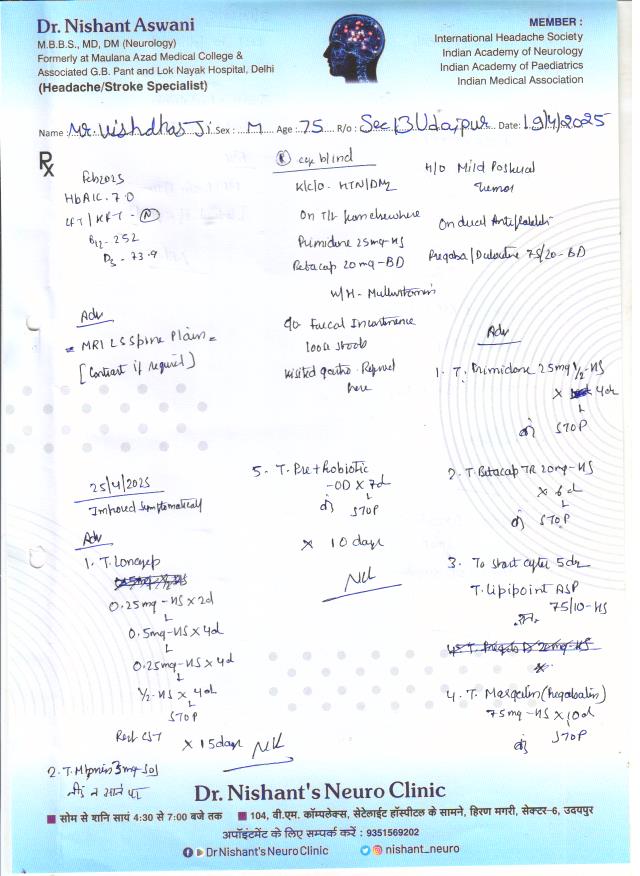 Dr. Nishant Aswani
M.B.B.S., MD, DM (Neurology)
Formerly at Maulana Azad Medical College &
Associated G.B. Pant and Lok Nayak Hospital, Delhi
(Headache/Stroke Specialist)
MEMBER :
International Headache Society
Indian Academy of Neurology
Indian Academy of Paediatrics
Indian Medical Association
Name : Mr. Vishdhas Ji Sex : M Age : 75 R/o : Sec 13 Udaipur Date : 19/4/2025
Rx
Feb 2025
HbA1C - 7.0
LFT / KFT - N
B12 - 252
D3 - 73.9
Adv
MRI LS Spine Plain
[Contrast if required]
(R) eye blind
K/C/O - HTN/DM2
On T/t from elsewhere
Primidone 25mg - HS
Betacap 20mg - BD
- Multivitamin
c/o Faecal Incontinence
loose stools
visited gastro. Referred
here
H/O Mild Postural
Tremor
On dual Antiplatelets
Pregaba / Duloxetine 75/20 - BD
Adv
1. T. Primidone 25mg 1/2 - HS
x 4d
↓
STOP
2. T. Betacap TR 20mg - HS
x 6d
↓
STOP
3. To start after 5d
T. Lipipoint ASP
75/10 - HS
4. T. Margalin (Pregabalin)
75mg - HS x 10d
STOP
5. T. Pre + Probiotic
- OD x 7d
↓
STOP
x 10 days
25/4/2025
Improved symptomatically
Adv
1. T. Lonazep
0.25mg - HS x 2d
↓
0.5mg - HS x 4d
↓
0.25mg - HS x 4d
↓
1/2 - HS x 4d
↓
STOP
Rest CST
x 15 days
2. T. 3mg - SOS
नींद न आने पर
Dr. Nishant's Neuro Clinic
सोम से शनि सायं 4:30 से 7:00 बजे तक
104, वी.एम. कॉम्पलेक्स, सेटेलाईट हॉस्पीटल के सामने, हिरण मगरी, सेक्टर-6, उदयपुर
अपॉइंटमेंट के लिए सम्पर्क करें : 9351569202
Dr Nishant's Neuro Clinic
nishant_neuro